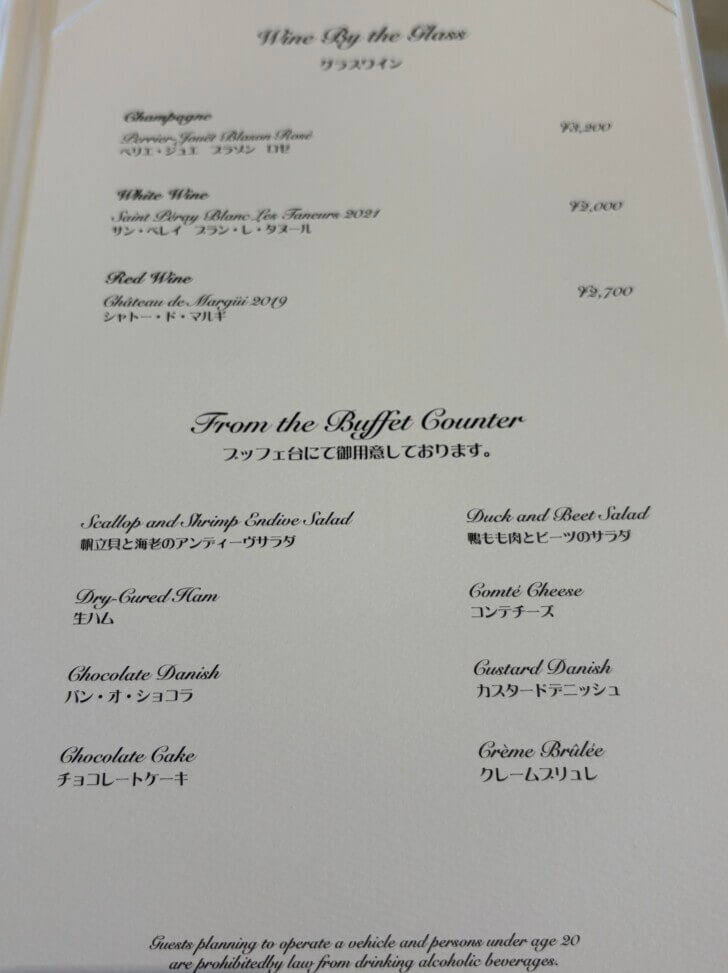 Wine By the Glass
グラスワイン
Champagne
Perrier-Jouët Blason Rosé ¥3,200
ペリエ・ジュエ　ブラゾン　ロゼ
White Wine
Saint Péray Blanc Les Taneurs 2021 ¥2,000
サン・ペレイ　ブラン・レ・タヌール
Red Wine
Château de Margüi 2019 ¥2,700
シャトー・ド・マルギ
From the Buffet Counter
ブッフェ台にて御用意しております。
Scallop and Shrimp Endive Salad Duck and Beet Salad
帆立貝と海老のアンディーヴサラダ 鴨もも肉とビーツのサラダ
Dry-Cured Ham Comté Cheese
生ハム コンテチーズ
Chocolate Danish Custard Danish
パン・オ・ショコラ カスタードデニッシュ
Chocolate Cake Crème Brûlée
チョコレートケーキ クレームブリュレ
Guests planning to operate a vehicle and persons under age 20
are prohibitedby law from drinking alcoholic beverages.